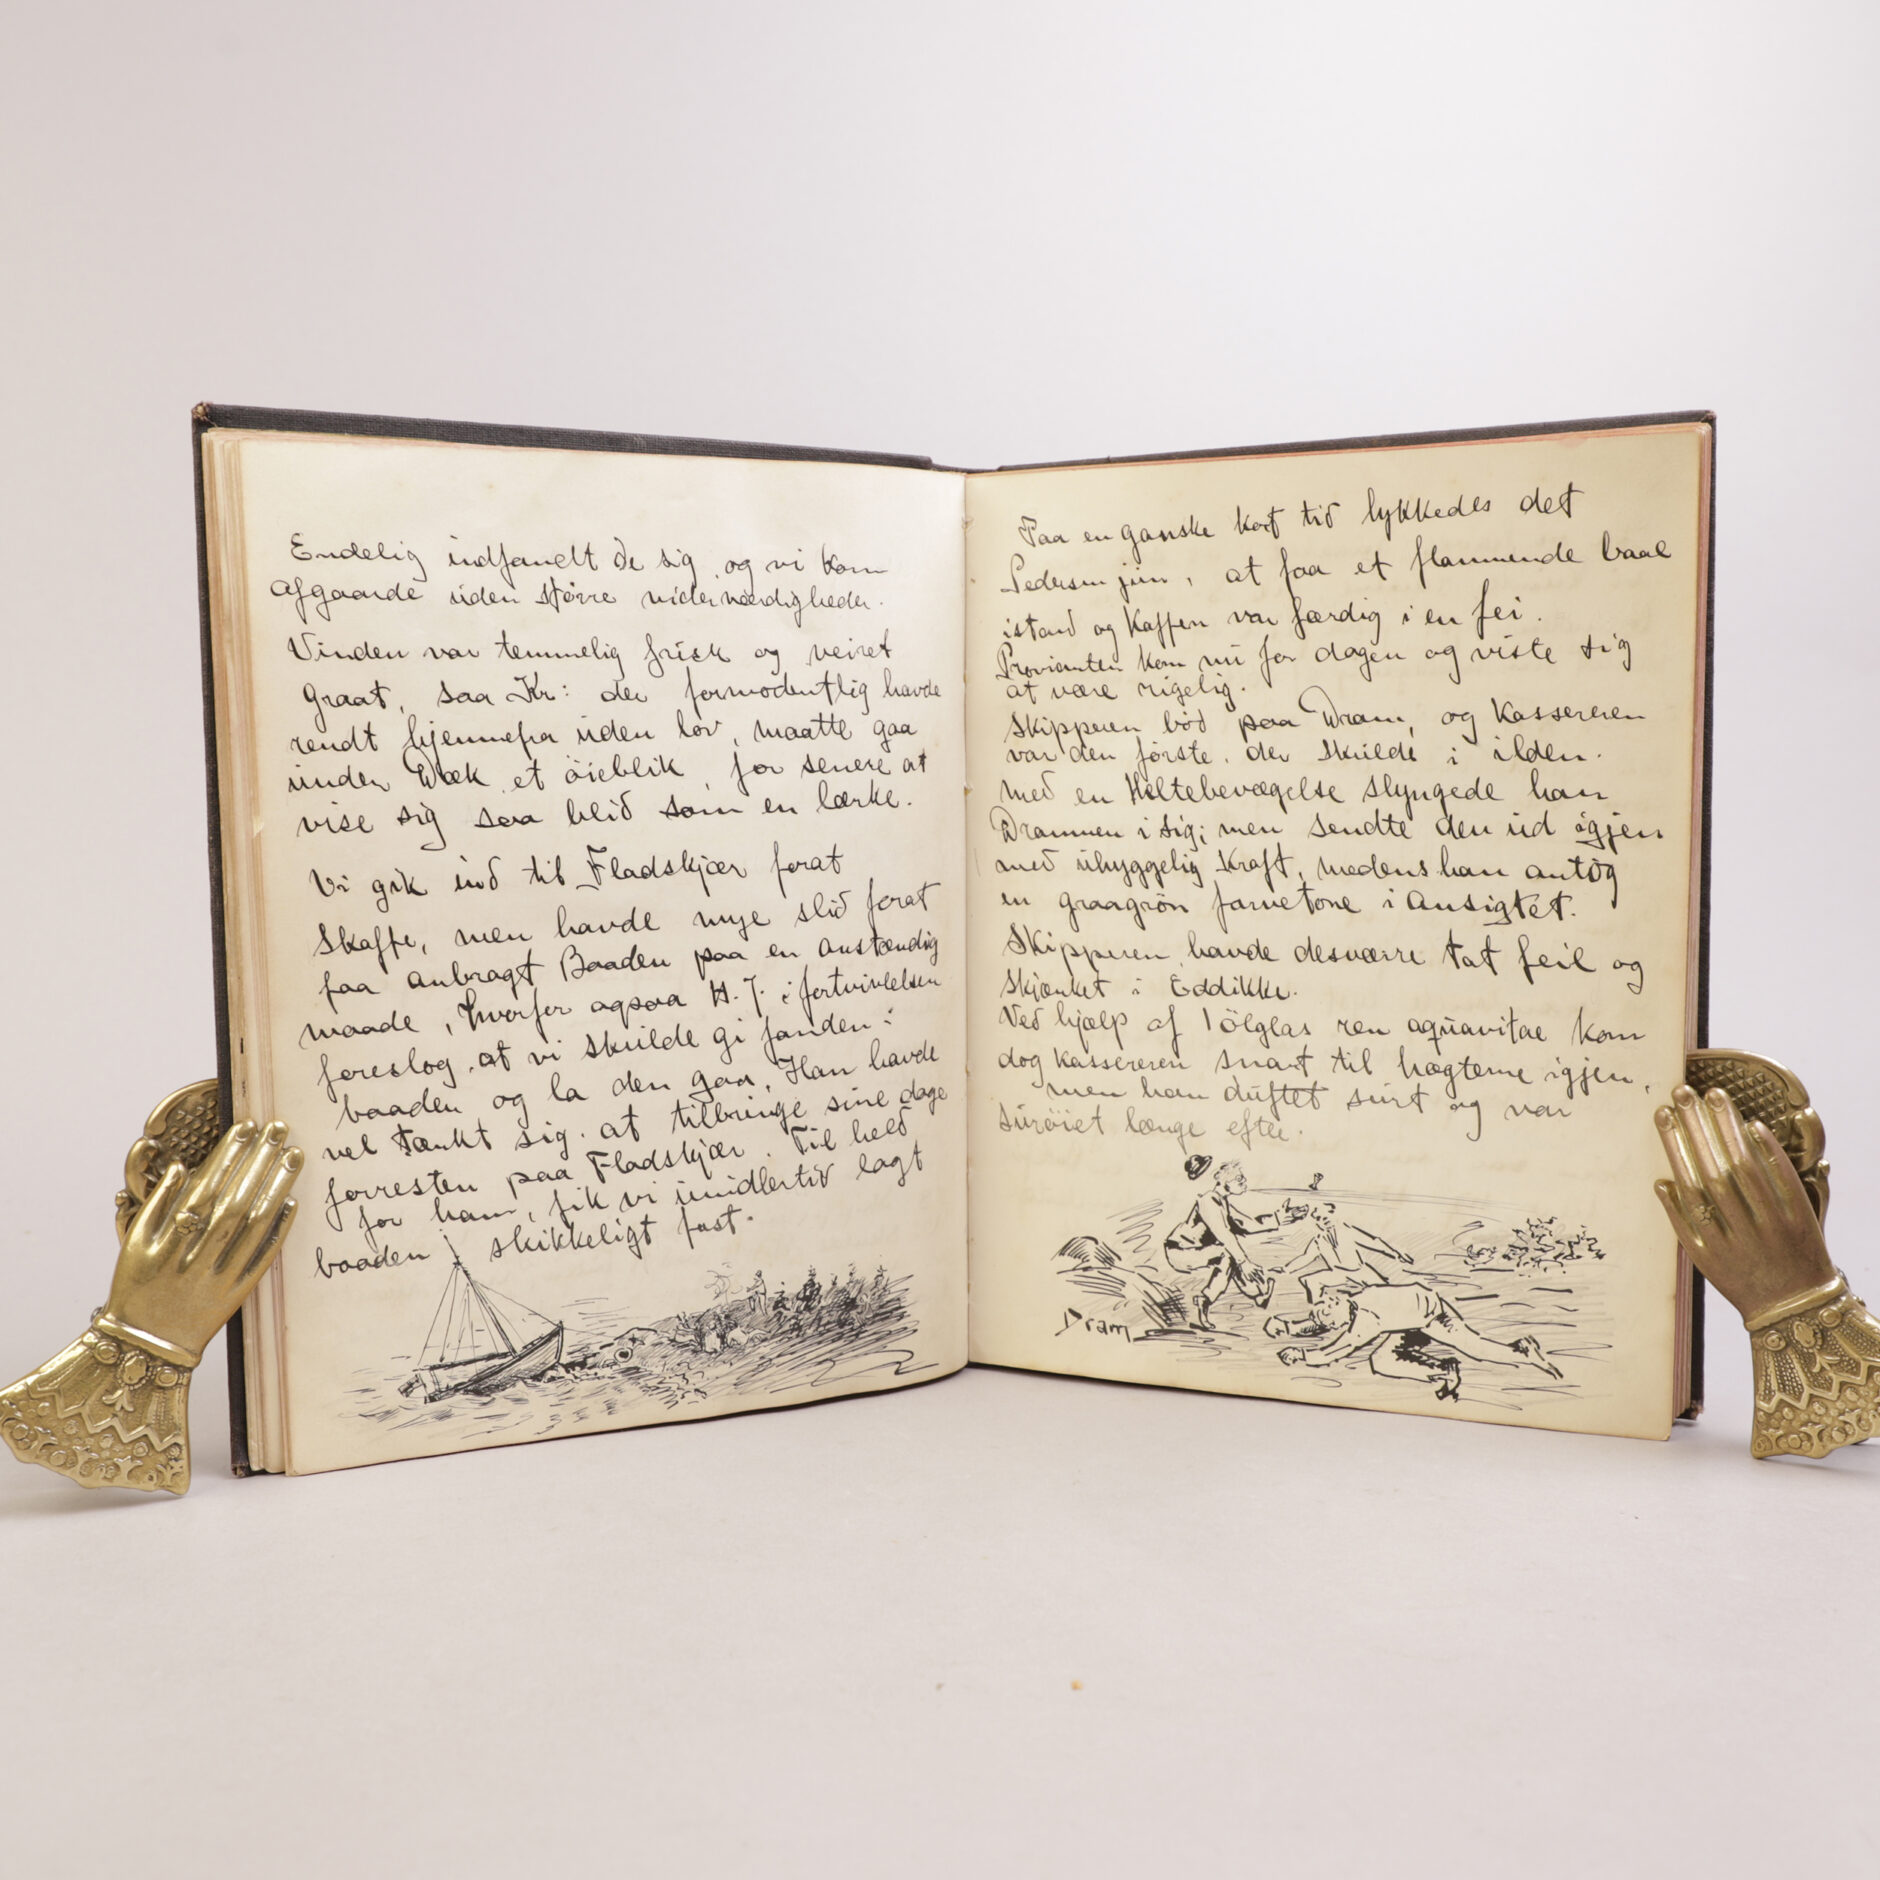 Endelig indfandt de sig, og vi kom
afgaarde uden større viderværdigheder.
Vinden var temmelig frisk og veiret
graat, saa Kr: der formodentlig havde
rendt hjemmefra uden lov, maatte gaa
under Dæk et öieblik, for senere at
vise sig saa blid som en lærke.
Vi gik ind til Fladskjær forat
skaffe, men havde mye slid forat
faa anbragt Baaden paa en anstændig
maade, hvorfor ogsaa H. J. i fortvivlelsen
foreslog, at vi skulde gi fanden i
baaden og la den gaa. Han havde
vel tænkt sig at tilbringe sine dage
forresten paa Fladskjær. Til held
for ham, fik vi imidlertid lagt
baaden skikkeligt fast.
Paa en ganske kort tid lykkedes det
Pedersen jun, at faa et flammende baal
istand og Kaffen var færdig i en fei.
Provianten kom nu for dagen og viste sig
at være rigelig.
Skipperen bød paa Dram, og Kassereren
var den første, der skulde i ilden.
Med en Heltebevægelse slyngede han
Drammen i sig; men sendte den ud igjen
med uhyggelig Kraft, medens han antog
en graagrön farvetone i Ansigtet.
Skipperen havde desværre tat feil og
skjænket i Eddikke.
Ved hjælp af 1 ölglas ren aquavitae kom
dog Kassereren snart til hægterne igjen,
men han duftet surt og var
suröiet længe efter.
Dram